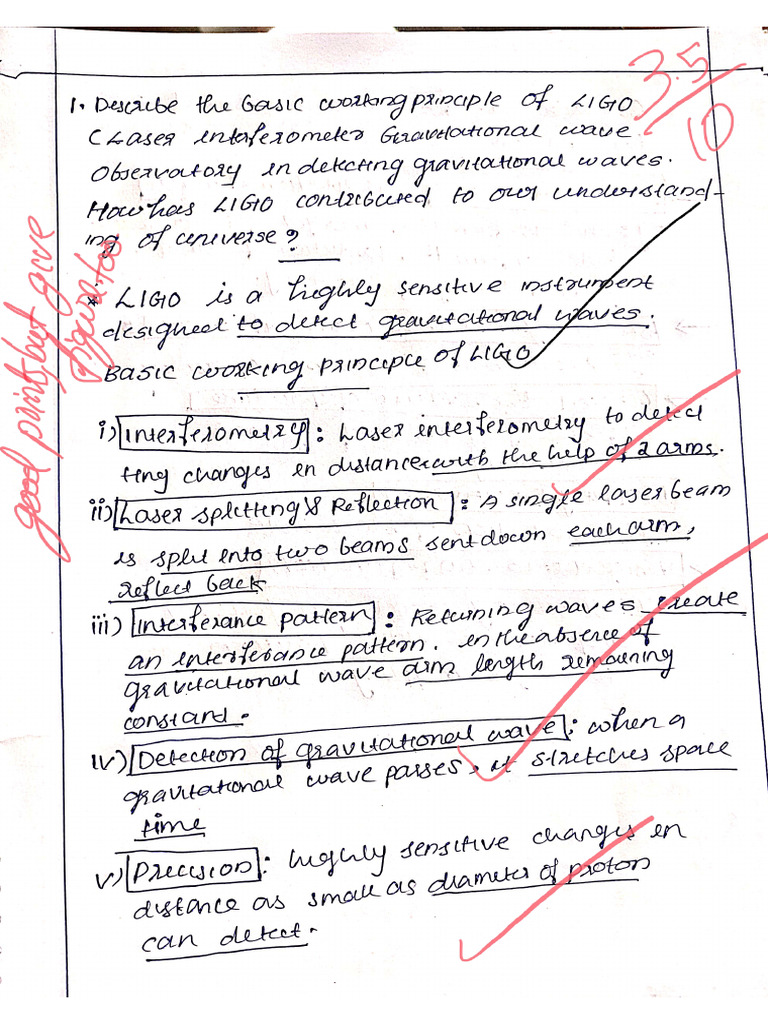 3.5
10
1. Describe the basic working principle of LIGO
(Laser Interferometer Gravitational wave
Observatory in detecting gravitational waves.
How has LIGO contributed to our understand-
ing of universe?
good points but give
figure too
* LIGO is a highly sensitive instrument
designed to detect gravitational waves.
Basic working principle of LIGO
i) Interferometry: Laser interferometry to detect
ting changes in distance with the help of 2 arms.
ii) Laser splitting & Reflection: A single laser beam
is split into two beams sent down each arm,
reflect back
iii) Interferance pattern: Returning waves create
an interferance pattern. in the absence of
gravitational wave arm length remaining
constand.
iv) Detection of gravitational wave: when a
gravitational wave passes, it stretches space
time
v) Precision: highly sensitive changes in
distance as small as diameter of proton
can detect.